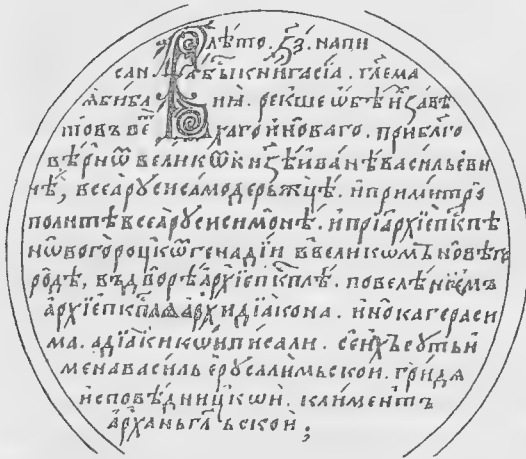 В лѣто ҂зз҃. напи
сана бы̑ книга сїа. гл҃ема
а библиа. рекше ѡбѣи́х завѣ
товъ ве́тхаго и новаго. при бл҃го
вѣрнѡ великѡ кн҃зѣ иванѣ васильеви
чѣ, всеа руси самодерьжцѣ. и при митро
политѣ всеа руси симонѣ. и при архїепкпѣ
новогороцкѡ генадїи в великѡмъ новѣго
родѣ, въ дворѣ архїепкплѣ. повелѣнїемъ
архїепкпля архидїакона. инока гераси
ма. а дїаки кѡи писали. се ихъ суть и
мена василь ерусалимьскои. гридя
исповѣдницкѡи. климентъ
арханьгл҃ьскои;